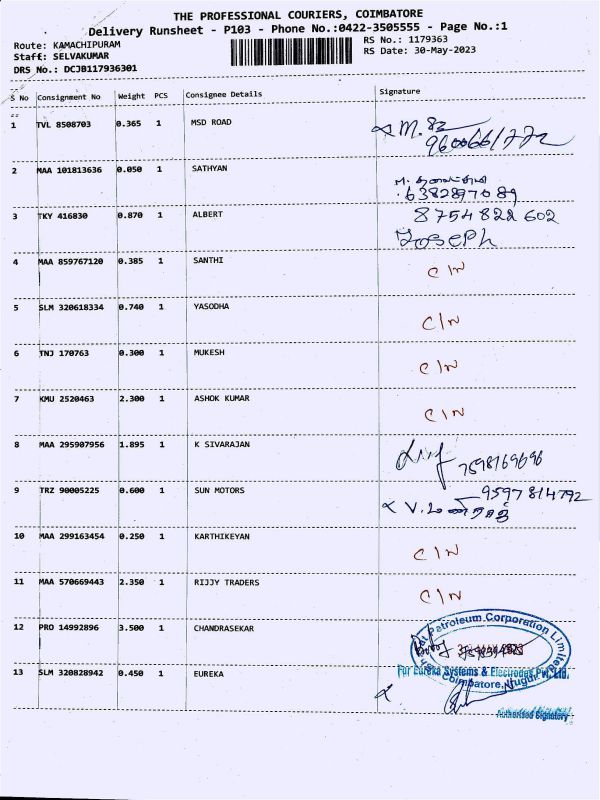 THE PROFESSIONAL COURIERS, COIMBATORE
Delivery Runsheet - P103 - Phone No.:0422-3505555 - Page No.:1
Route: KAMACHIPURAM RS No.: 1179363
Staff: SELVAKUMAR RS Date: 30-May-2023
DRS No.: DCJB117936301
S No Consignment No Weight PCS Consignee Details Signature
1 TVL 8508703 0.365 1 MSD ROAD
2 MAA 101813636 0.050 1 SATHYAN
6382897089
3 TKY 416830 0.870 1 ALBERT 8754822602
JOSEPH
4 MAA 859767120 0.385 1 SANTHI C/N
5 SLM 320618334 0.740 1 YASODHA C/N
6 TNJ 170763 0.300 1 MUKESH C/N
7 KMU 2520463 2.300 1 ASHOK KUMAR C/N
8 MAA 295907956 1.895 1 K SIVARAJAN
7598169696
9 TRZ 90005225 0.600 1 SUN MOTORS 9597814792
10 MAA 299163454 0.250 1 KARTHIKEYAN C/N
11 MAA 570669443 2.350 1 RIJJY TRADERS C/N
12 PRO 14992896 3.500 1 CHANDRASEKAR
Petroleum Corporation Limited
Coimbatore
13 SLM 320828942 0.450 1 EUREKA
For Eureka Systems & Electrodes Pvt. Ltd.
Authorised Signatory